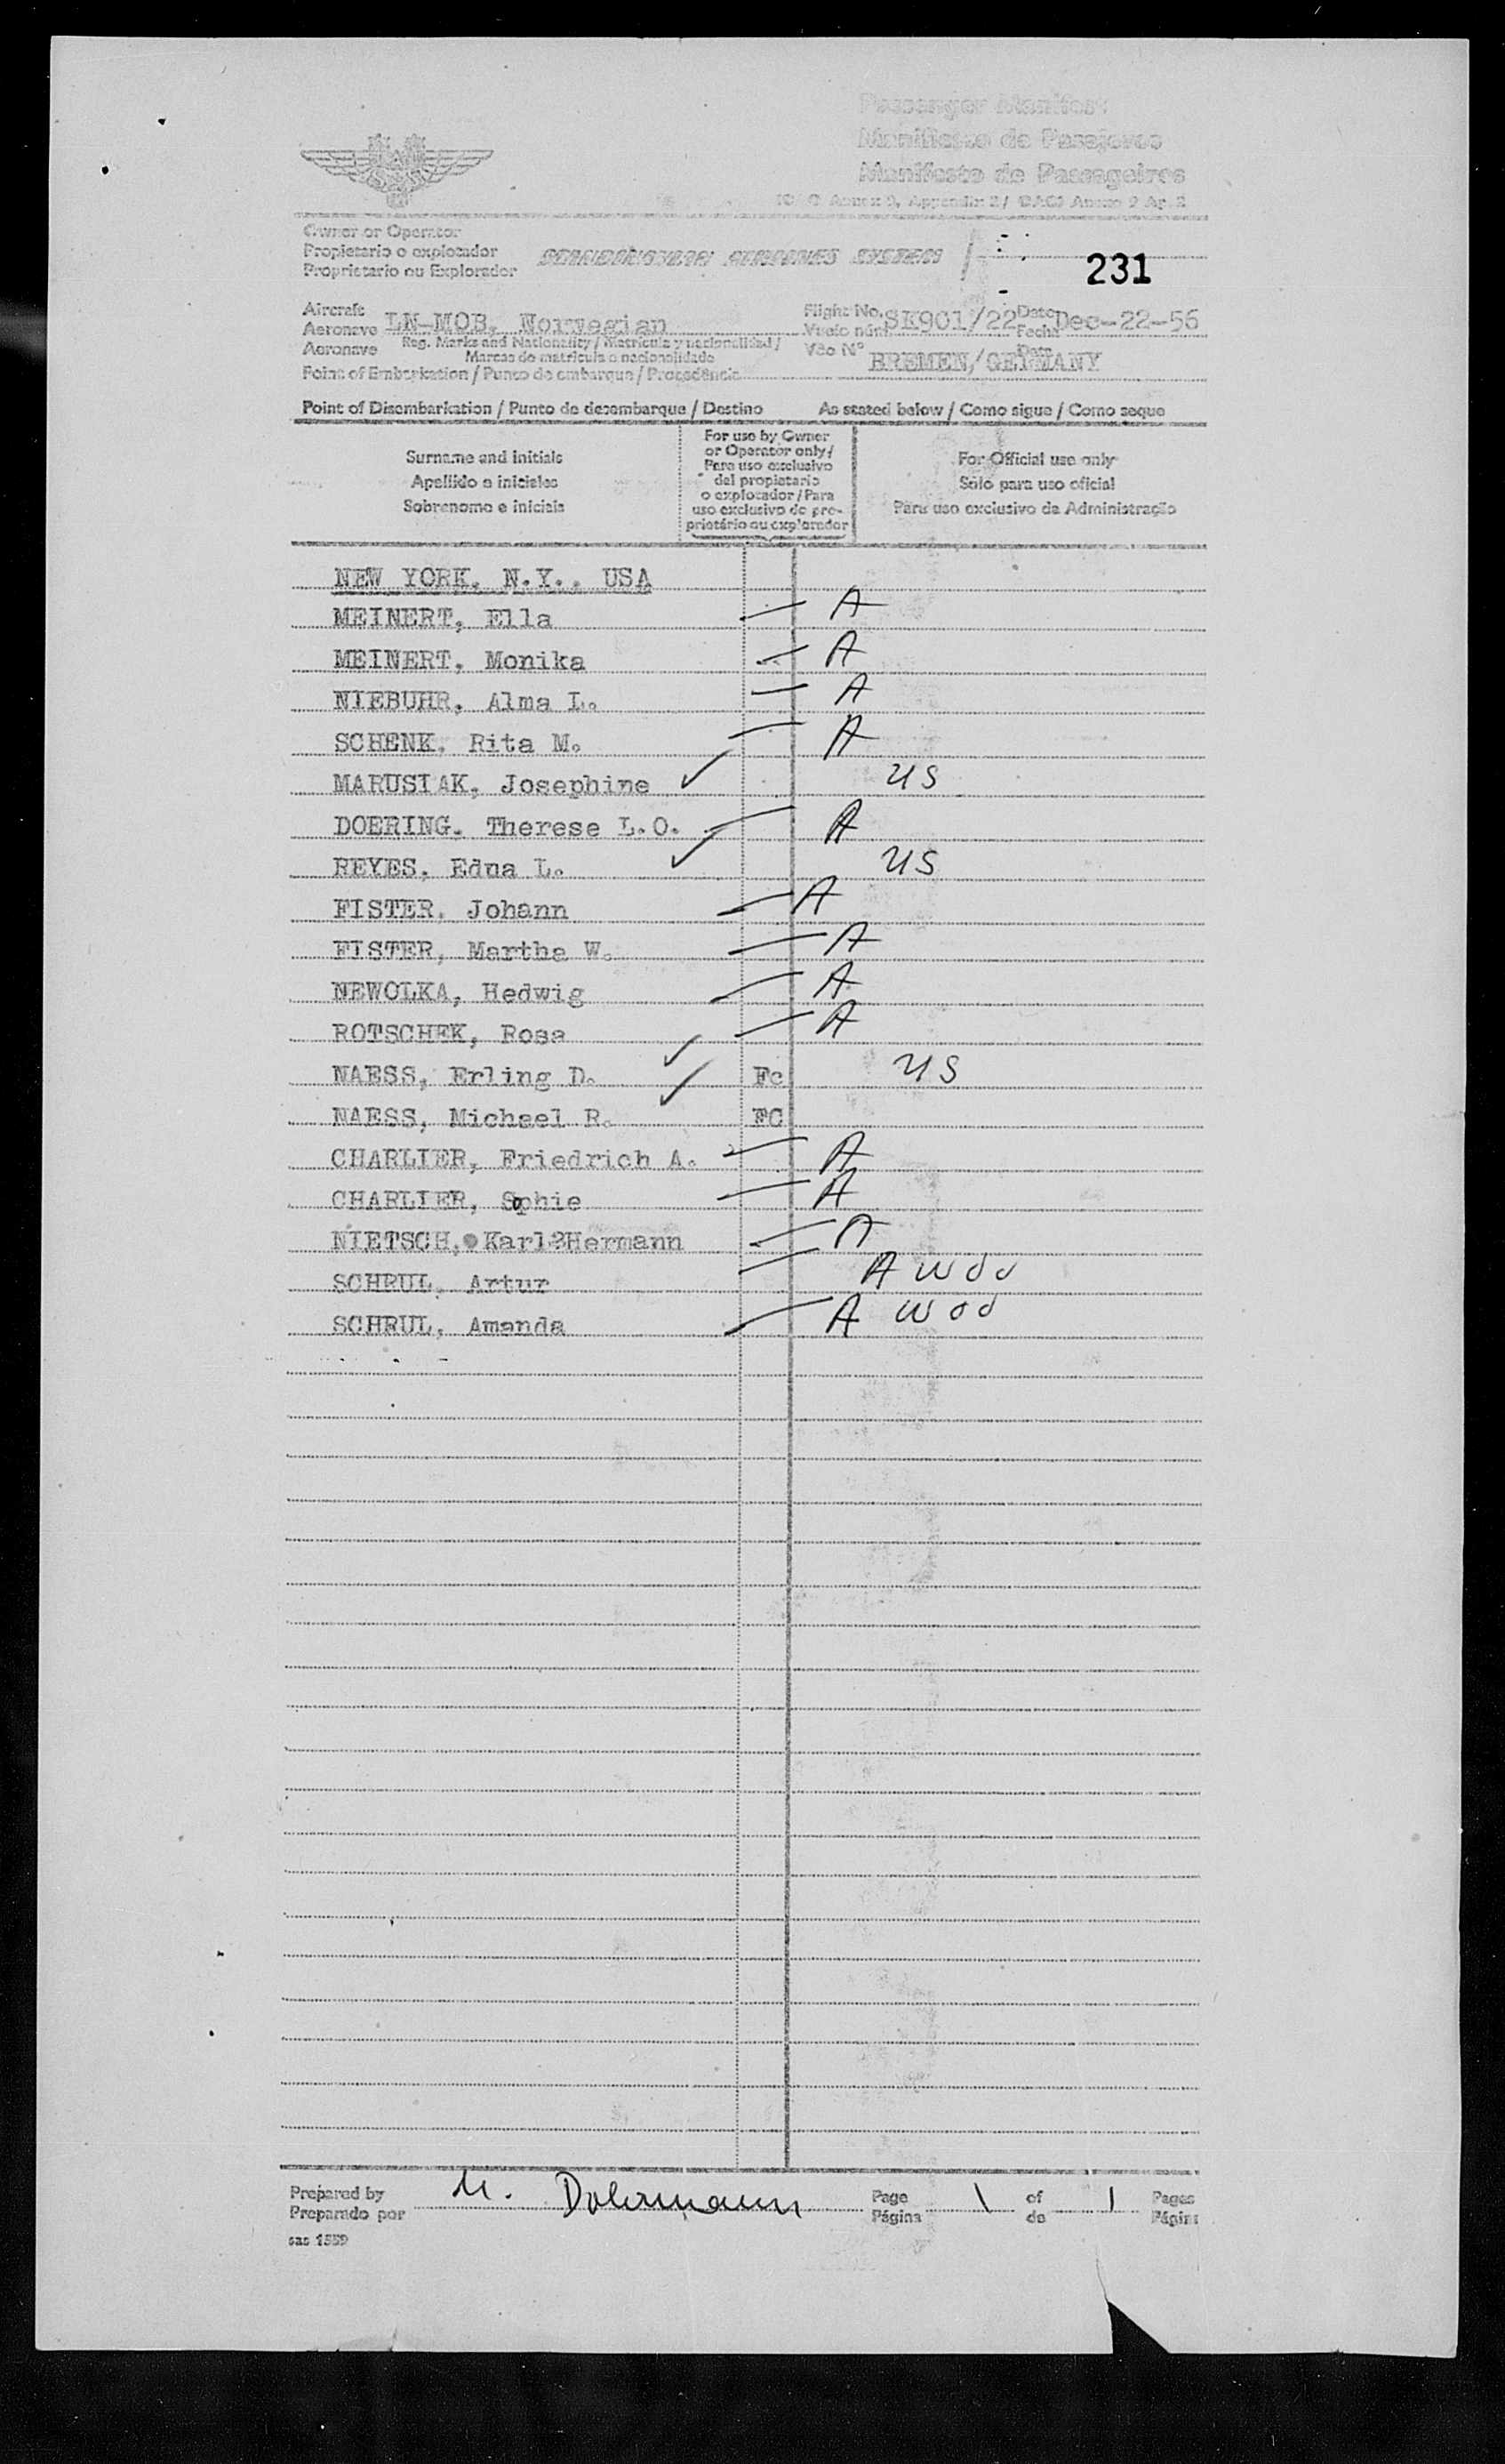 Passenger Manifest
Manifiesto de Pasajeros
Manifesto de Passageiros
Owner or Operator
Propietario o explotador
Proprietario ou Explorador
SCANDINAVIAN AIRLINES SYSTEM
231
Aircraft
Aeronave
Aeronave
LN-MOB, Norwegian
Reg. Marks and Nationality / Matricula y nacionalidad /
Marcas de matricula e nacionalidade
Flight No.
Vuelo núm
Vôo Nº
SK901/22
Date
Fecha
Data
Dec-22-56
Point of Embarkation / Punto de embarque / Procedência
BREMEN/GERMANY
Point of Disembarkation / Punto de desembarque / Destino
As stated below / Como sigue / Como segue
Surname and initials
Apellido e iniciales
Sobrenome e iniciais
For use by Owner
or Operator only/
Para uso exclusivo
del propietario
o explotador / Para
uso exclusivo do pro-
prietário ou explorador
For Official use only
Sólo para uso oficial
Para uso exclusivo da Administração
NEW YORK, N.Y., USA
MEINERT, Ella A
MEINERT, Monika A
NIEBUHR, Alma L. A
SCHENK, Rita M. A
MARUSIAK, Josephine US
DOERING, Therese L.O. A
REYES, Edna L. US
FISTER, Johann A
FISTER, Martha W. A
NEWOLKA, Hedwig A
ROTSCHEK, Rosa A
NAESS, Erling D. Fc US
NAESS, Michael R. FC
CHARLIER, Friedrich A. A
CHARLIER, Sophie A
NIETSCH, Karl Hermann A
SCHRUL, Artur A
SCHRUL, Amanda A
Prepared by
Preparado por
M. Dohrmann
Page
Página
1
of
de
1
Pages
Págin
sas 1559